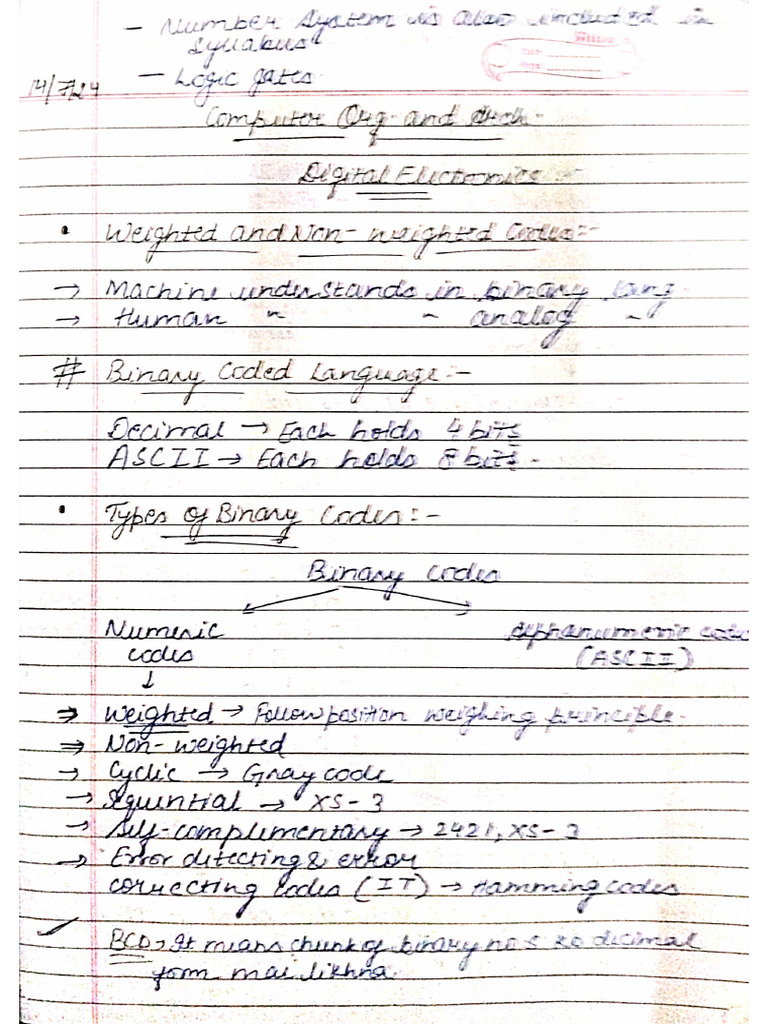 - Number System is also included in
Syllabus
- Logic gates.
14/7/24
Computer Org. and Arch.
Digital Electronics
• Weighted and Non-weighted Codes:-
→ Machine understands in binary lang.
→ Human " " analog "
# Binary Coded Language:-
Decimal → Each holds 4 bits
ASCII → Each holds 8 bits.
• Types of Binary Codes:-
Binary Codes
Numeric Alphanumeric code
codes (ASCII)
↓
⇒ Weighted → Follow position weighing principle.
⇒ Non-weighted
→ Cyclic → Gray code
→ Sequential → XS-3
→ Self-complimentary → 2421, XS-3
→ Error detecting & error
correcting codes (IT) → Hamming codes
✓ BCD → It means chunk of binary no's ko decimal
form mai likhna